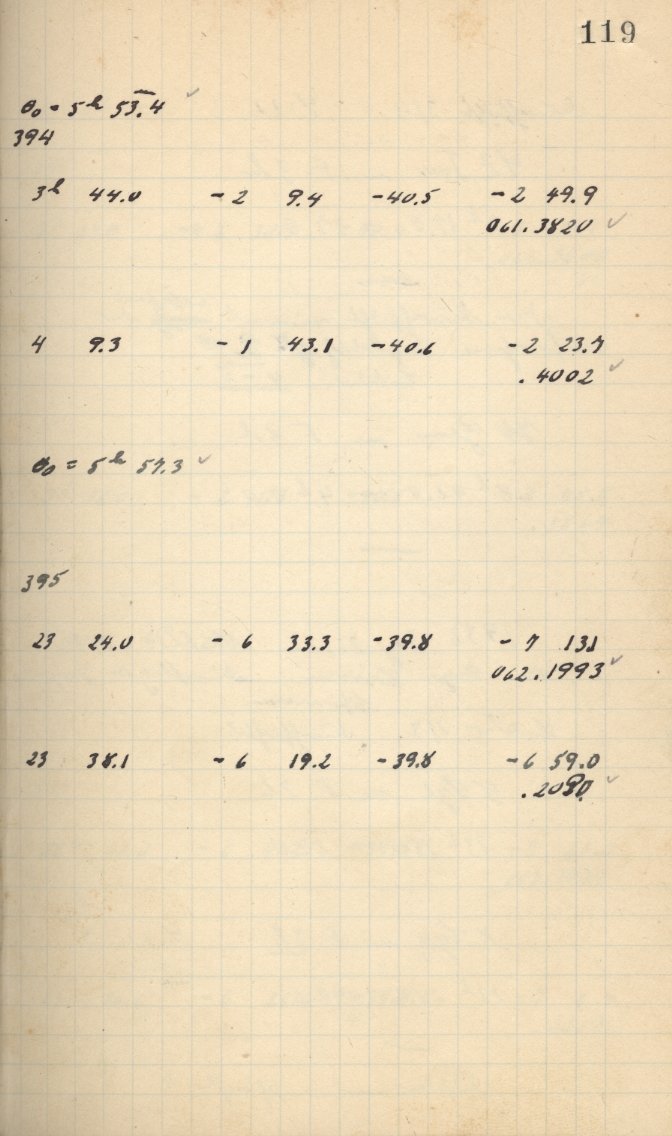 119
θ₀ = 5ʰ 53.4 ✓
394
3ʰ 44.0 -2 9.4 -40.5 -2 49.9
061.3820 ✓
4 9.3 -1 43.1 -40.6 -2 23.7
.4002 ✓
θ₀ = 5ʰ 57.3 ✓
395
23 24.0 -6 33.3 -39.8 -7 13.1
062.1993 ✓
23 38.1 -6 19.2 -39.8 -6 59.0
.2090 ✓